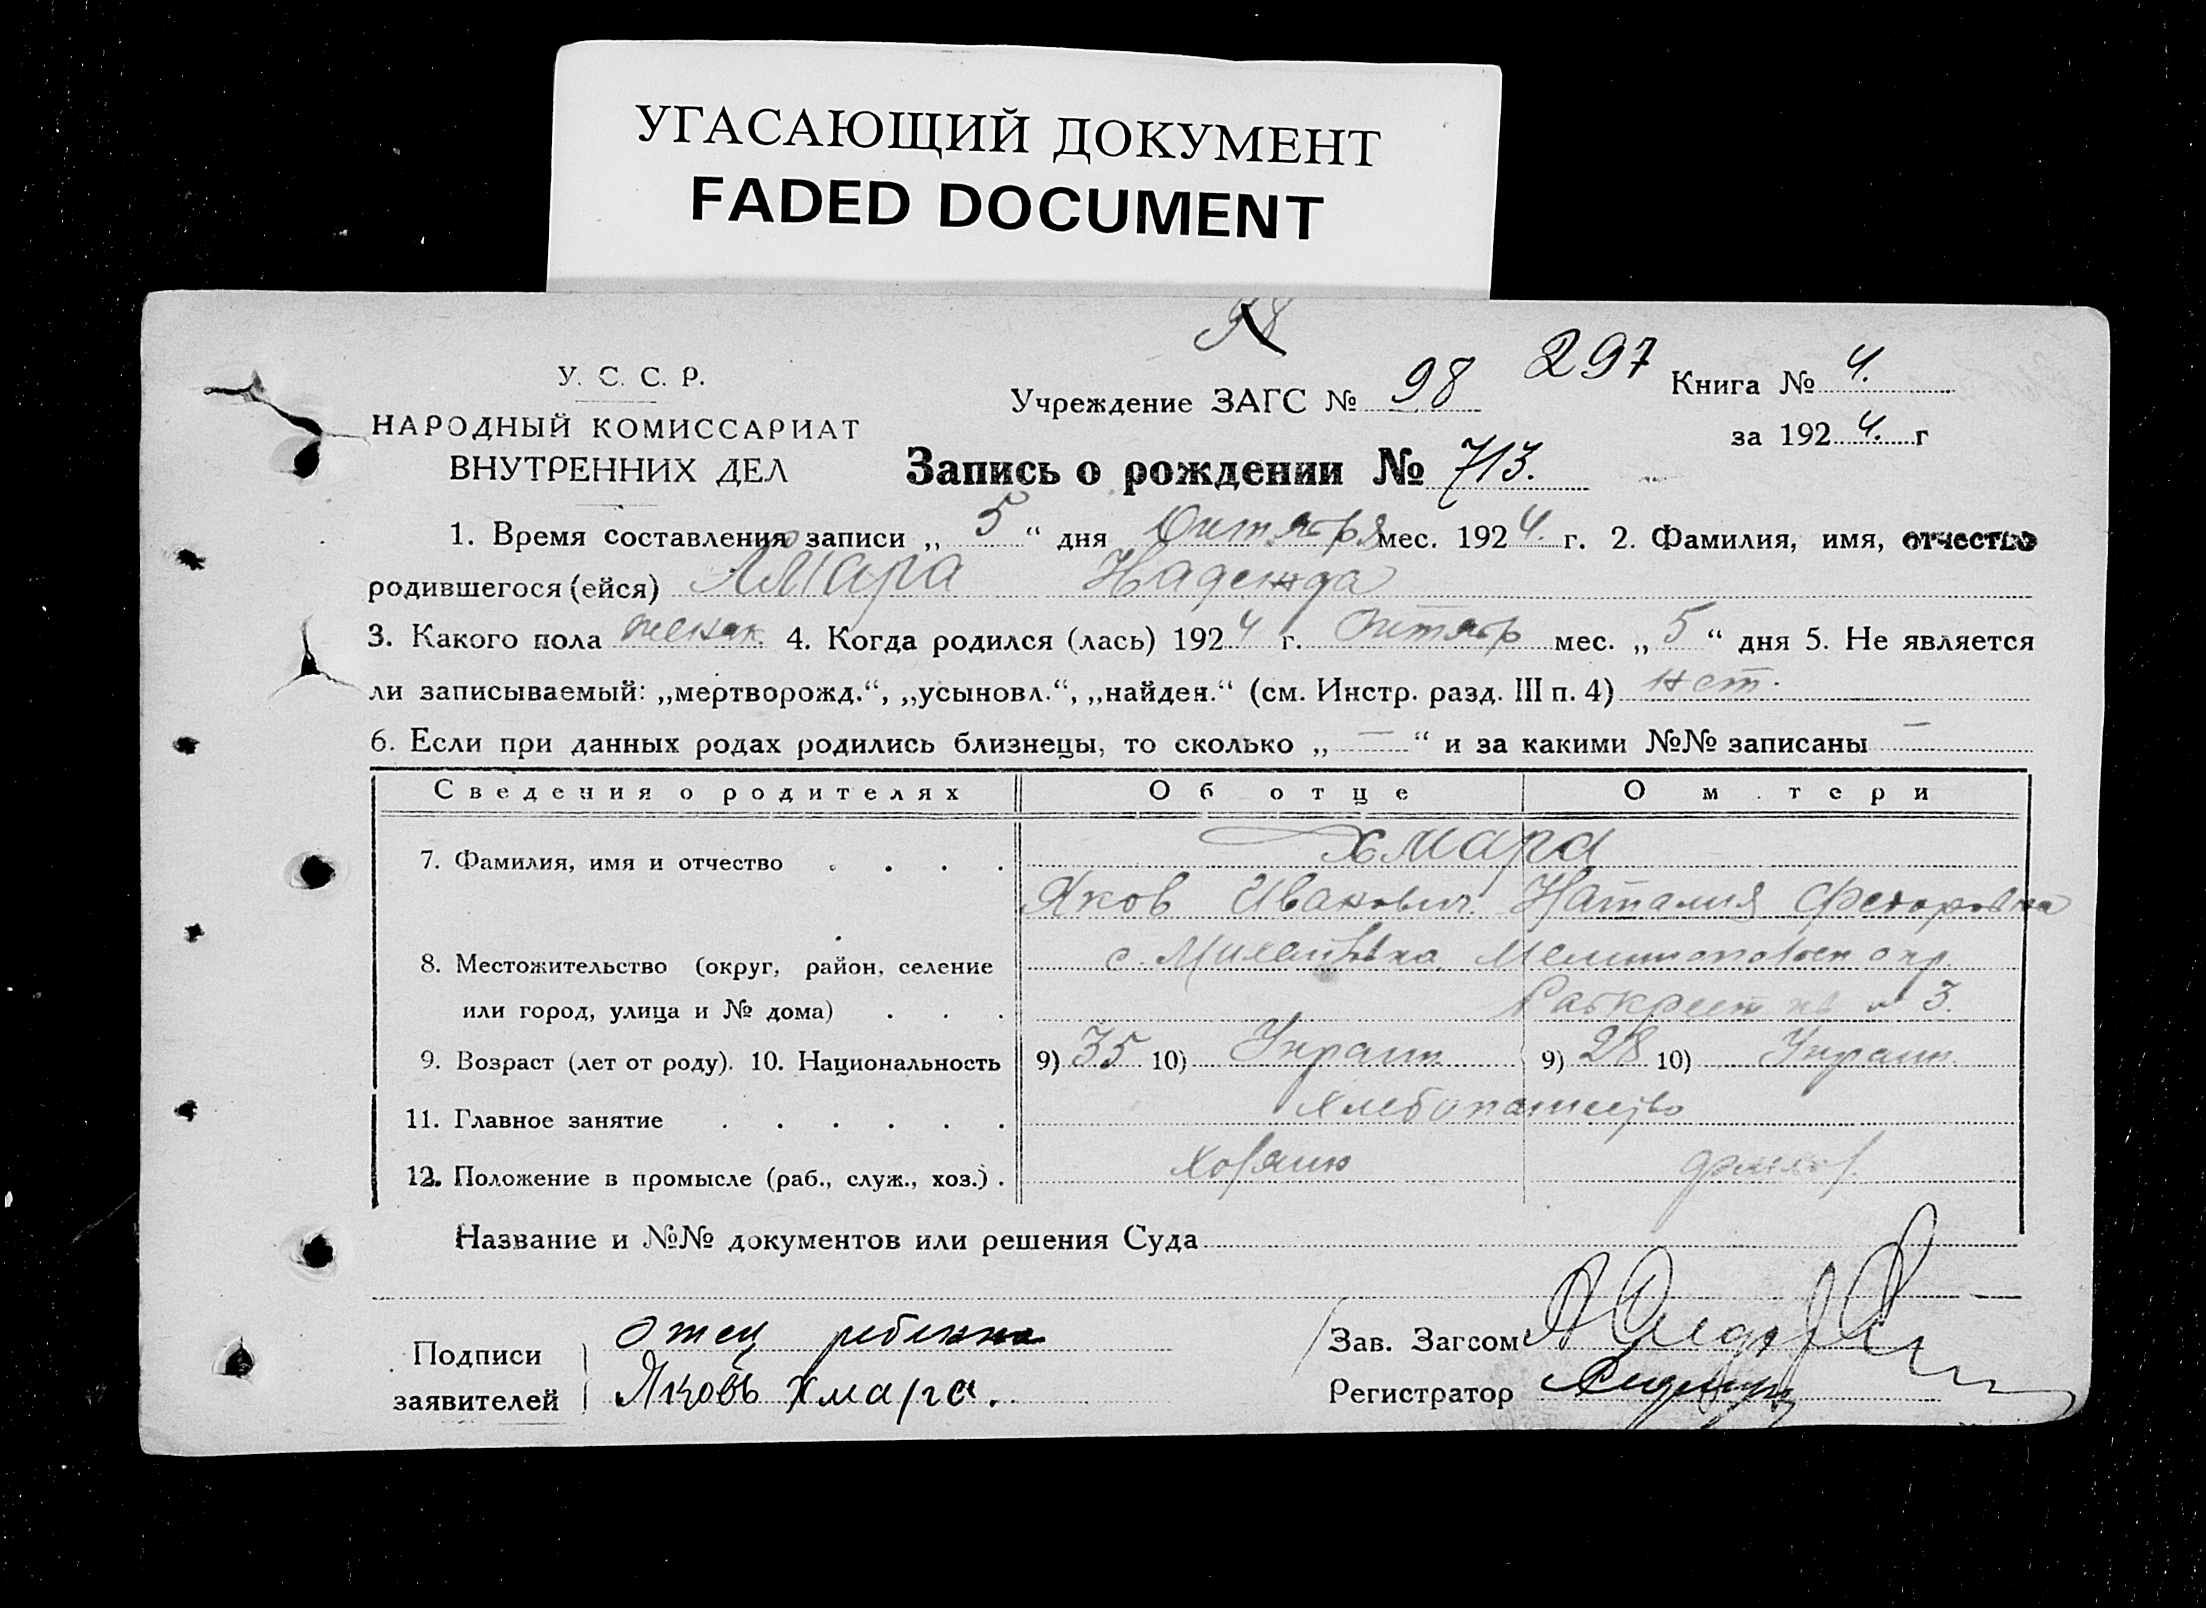 УГАСАЮЩИЙ ДОКУМЕНТ
FADED DOCUMENT
98
У. С. С. Р.
НАРОДНЫЙ КОМИССАРИАТ
ВНУТРЕННИХ ДЕЛ
Учреждение ЗАГС № 98 297
Книга № 4.
за 1924. г
Запись о рождении № 713.
1. Время составления записи „ 5 “ дня Октября мес. 1924. г. 2. Фамилия, имя, отчество
родившегося (ейся) Хмара Надежда
3. Какого пола женск. 4. Когда родился (лась) 1924 г. Октябр мес. „ 5 “ дня 5. Не является
ли записываемый: „мертворожд.“, „усыновл.“, „найден.“ (см. Инстр. разд. III п. 4) нет.
6. Если при данных родах родились близнецы, то сколько „ — “ и за какими №№ записаны —
Сведения о родителях Об отце О м тери
7. Фамилия, имя и отчество . . . . Хмара
Яков Иванович Наталия Федоровна
8. Местожительство (округ, район, селение с. Михайловка, Мелитопольск окр.
или город, улица и № дома) . . . № 3.
9. Возраст (лет от роду). 10. Национальность 9) 35 10) Украин. 9) 28 10) Украин.
11. Главное занятие . . . . . . Хлебопашество
12. Положение в промысле (раб., служ., хоз.) . хозяин
Название и №№ документов или решения Суда
Подписи
заявителей
Отец ребенка
Яковъ Хмара.
Зав. Загсом
Регистратор